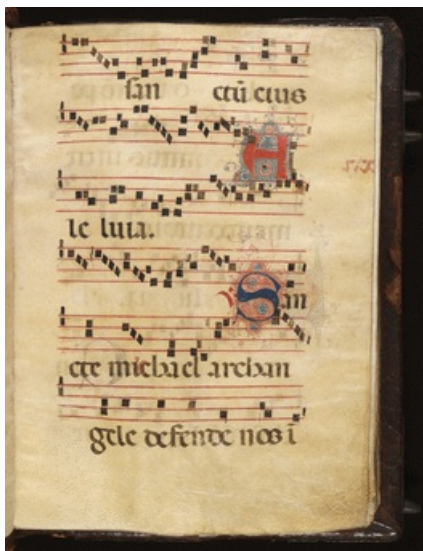 san ctū eius
A
le luia.
San
cte michael archan
gele defende nos ī